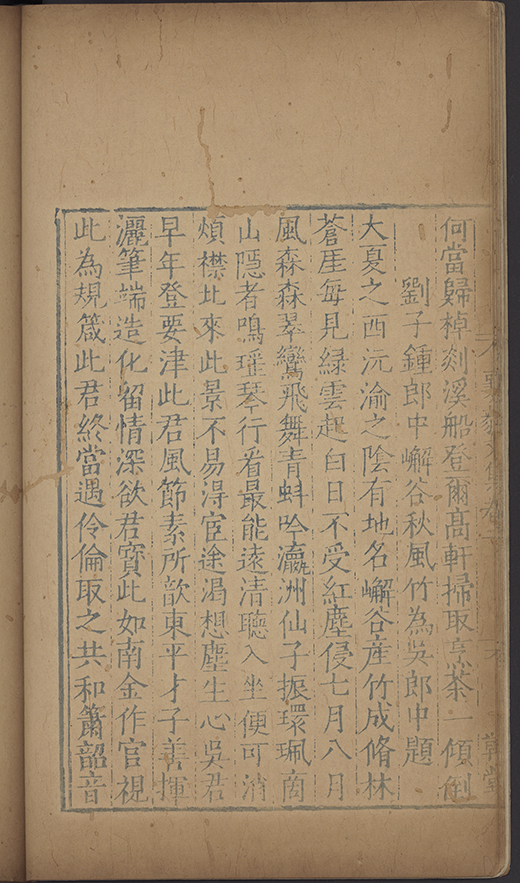 何當歸棹剡溪船登爾髙軒掃取烹茶一傾倒
劉子鍾郎中嶰谷秋風竹為吳郎中題
大夏之西沅渝之陰有地名嶰谷産竹成脩林
蒼厓每見緑雲起白日不受紅塵侵七月八月
風森森翠鸞飛舞青虯吟瀛洲仙子振環珮商
山隱者鳴瑶琴行看最能逺清聽入坐便可消
煩襟比來此景不易淂宦途渴想塵生心吳君
早年登要津此君風節素所歆東平才子善揮
灑筆端造化留情深欲君寳此如南金作官視
此為規箴此君終當遇伶倫取之共和簫韶音
草堂